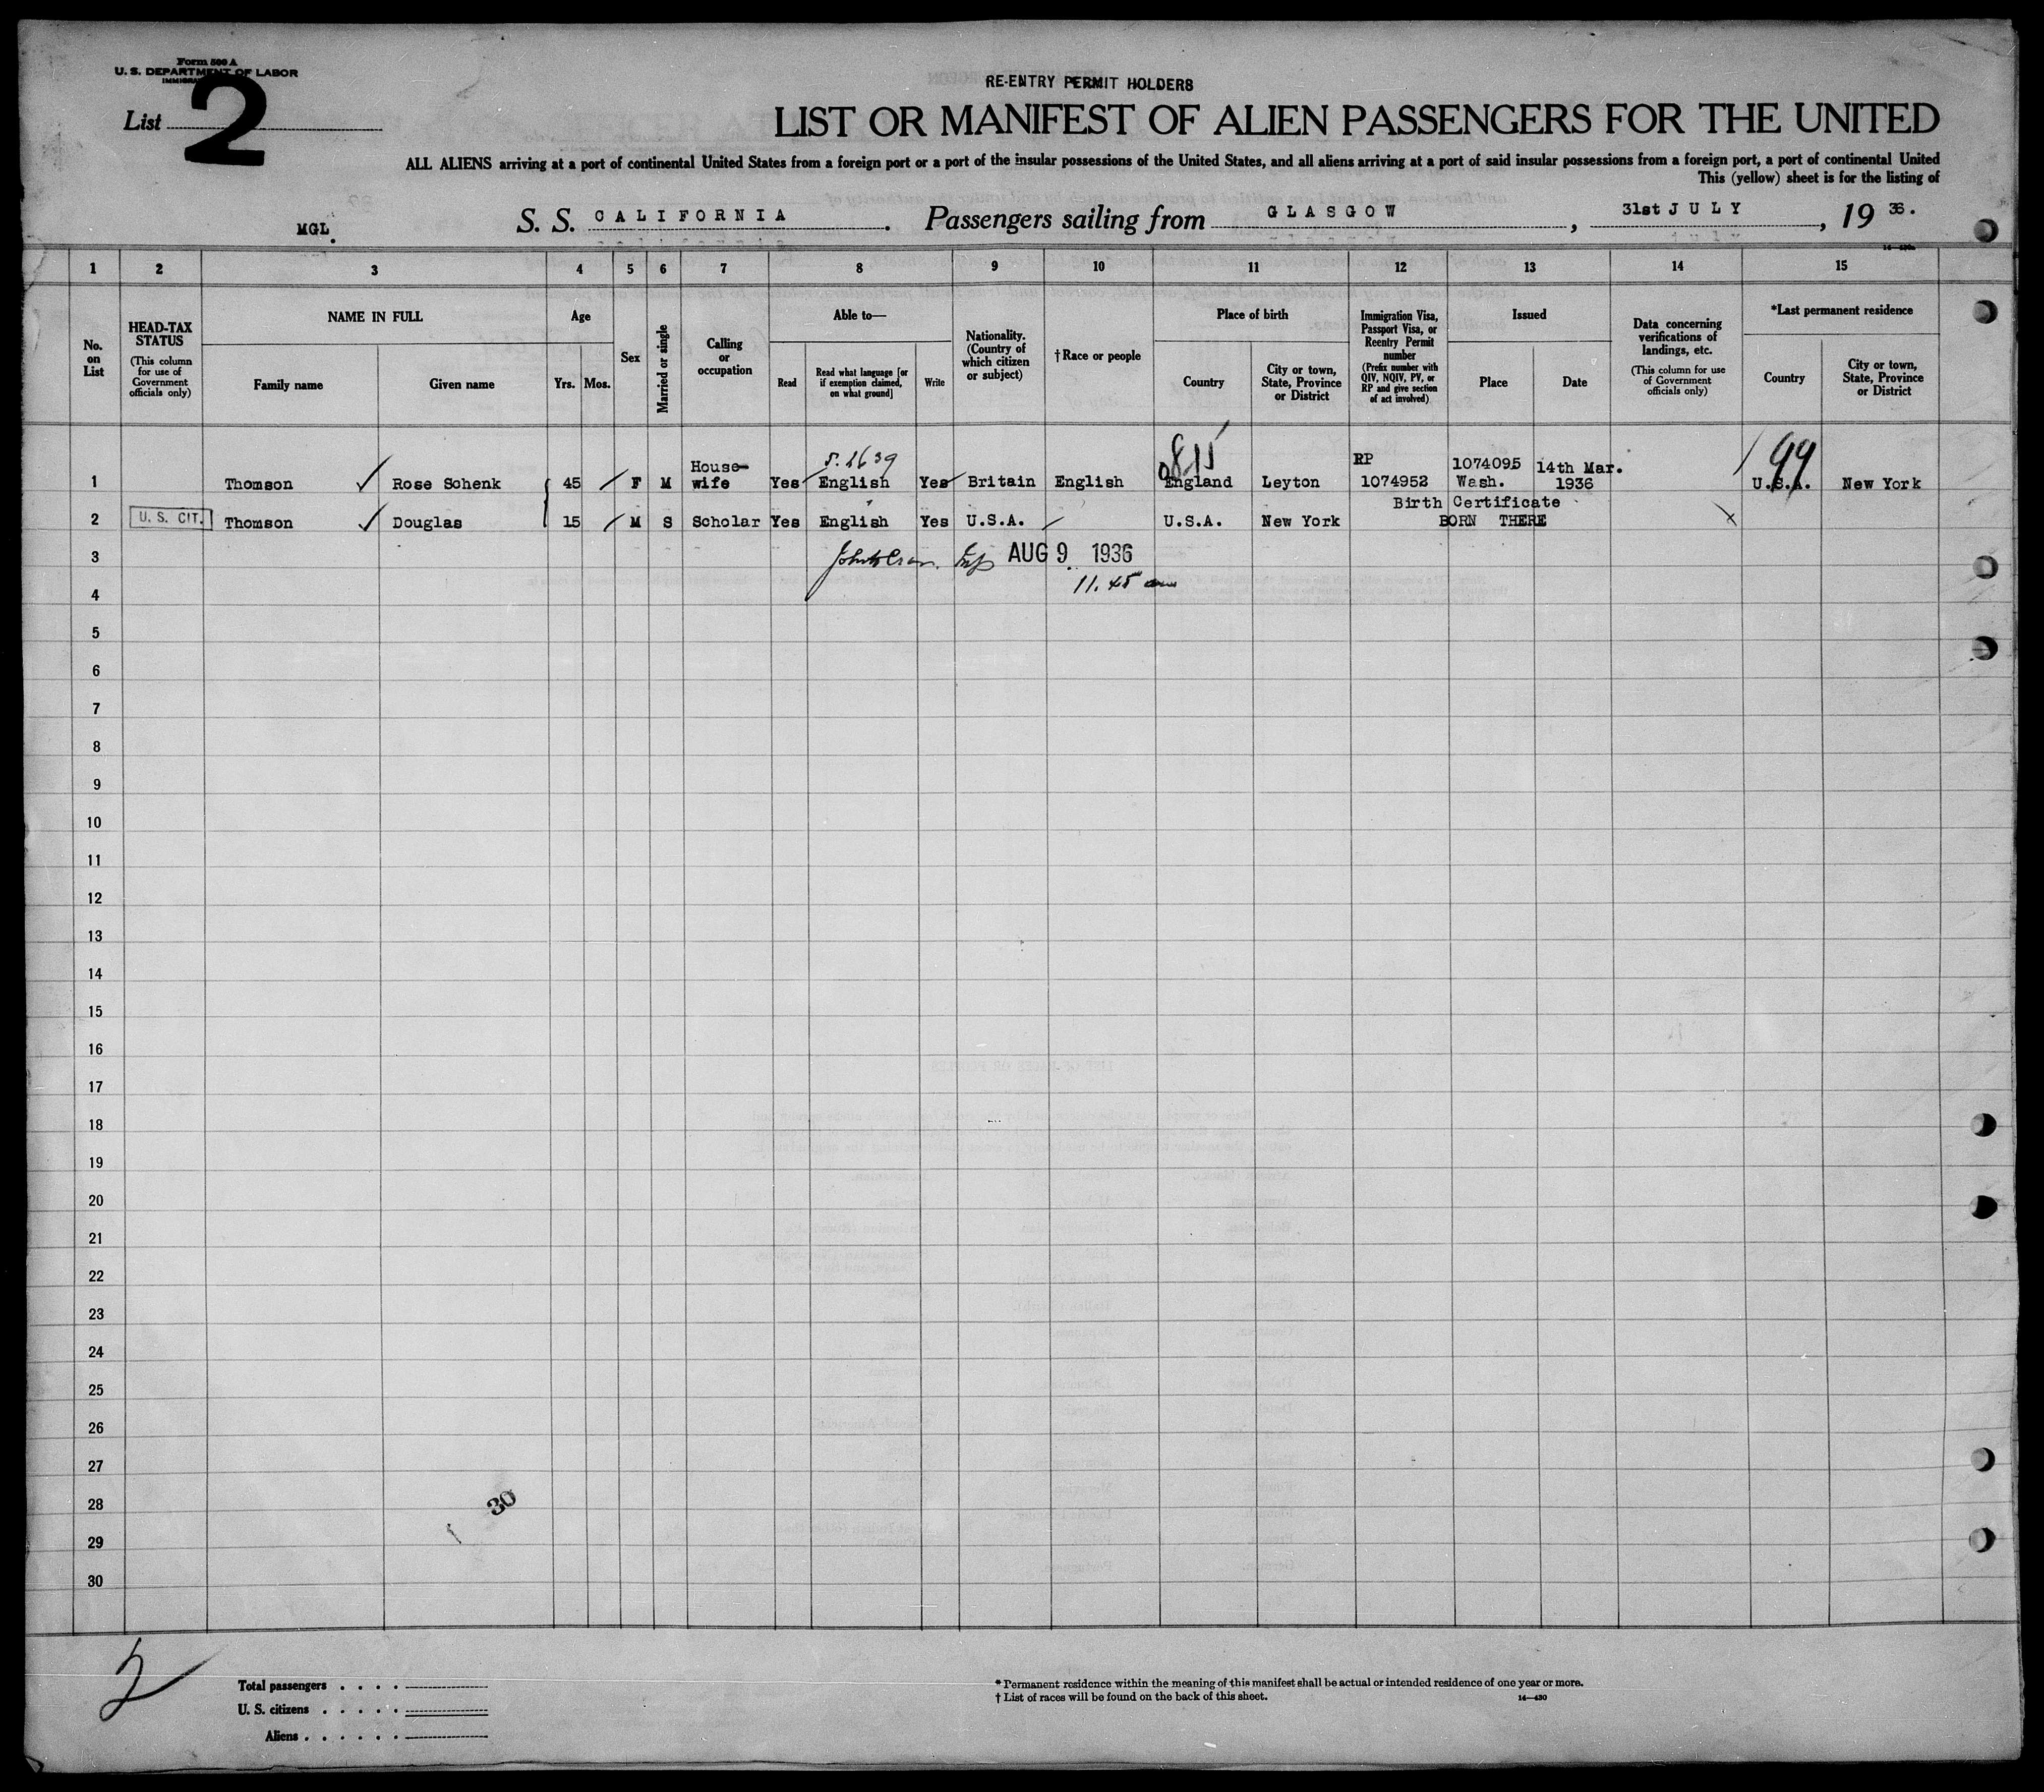 Form 500 A
U. S. DEPARTMENT OF LABOR
List 2
RE-ENTRY PERMIT HOLDERS
LIST OR MANIFEST OF ALIEN PASSENGERS FOR THE UNITED
ALL ALIENS arriving at a port of continental United States from a foreign port or a port of the insular possessions of the United States, and all aliens arriving at a port of said insular possessions from a foreign port, a port of continental United
This (yellow) sheet is for the listing of
MGL. S. S. CALIFORNIA. Passengers sailing from GLASGOW, 31st JULY, 19 36.
1 2 3 4 5 6 7 8 9 10 11 12 13 14 15
No. on List
HEAD-TAX STATUS (This column for use of Government officials only)
NAME IN FULL
Family name
Given name
Age
Yrs. Mos.
Sex
Married or single
Calling or occupation
Able to—
Read
Read what language [or if exemption claimed, on what ground]
Write
Nationality. (Country of which citizen or subject)
†Race or people
Place of birth
Country
City or town, State, Province or District
Immigration Visa, Passport Visa, or Reentry Permit number (Prefix number with QIV, NQIV, PV, or RP and give section of act involved)
Issued
Place
Date
Data concerning verifications of landings, etc. (This column for use of Government officials only)
*Last permanent residence
Country
City or town, State, Province or District
5.2639 815 99
1 Thomson Rose Schenk 45 F M House-wife Yes English Yes Britain English England Leyton RP 1074952 1074095 Wash. 14th Mar. 1936 U.S.A. New York
2 U. S. CIT. Thomson Douglas 15 M S Scholar Yes English Yes U.S.A. U.S.A. New York Birth Certificate BORN THERE
3 AUG 9 1936
11.45 am
4
5
6
7
8
9
10
11
12
13
14
15
16
17
18
19
20
21
22
23
24
25
26
27
28 30
29
30
2
Total passengers
U. S. citizens
Aliens
* Permanent residence within the meaning of this manifest shall be actual or intended residence of one year or more.
† List of races will be found on the back of this sheet. 14—430